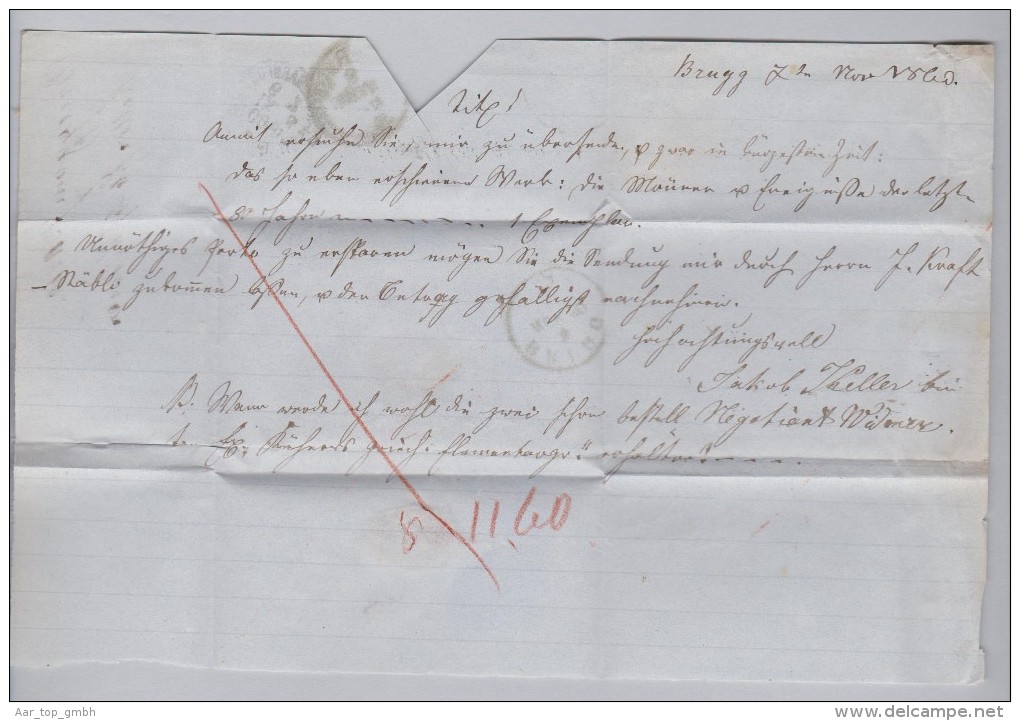 Brugg 7ten Nov 1860.
Titl!
Anmit ersuche Sie, mir zu übersenden, u zwar in kürzester Zeit:
das so eben erschienene Werk: die Männer u Ereignisse der letzt-
Jahre 1 Exemplar.
Unnöthiges Porto zu ersparen mögen Sie die Sendung mir durch Herrn J. Kraft
-Stäbli zukommen lassen, u den Betrag gefälligst nachnehmen.
Hochachtungsvoll
Jakob Keller bei
Wann werde ich wohl die zwei schon bestell Negotiant Widmer.
t. Ex. Kühners griech. Elementargr. erhalten?
11.60
Aar_top_gmbh
delcampe.net